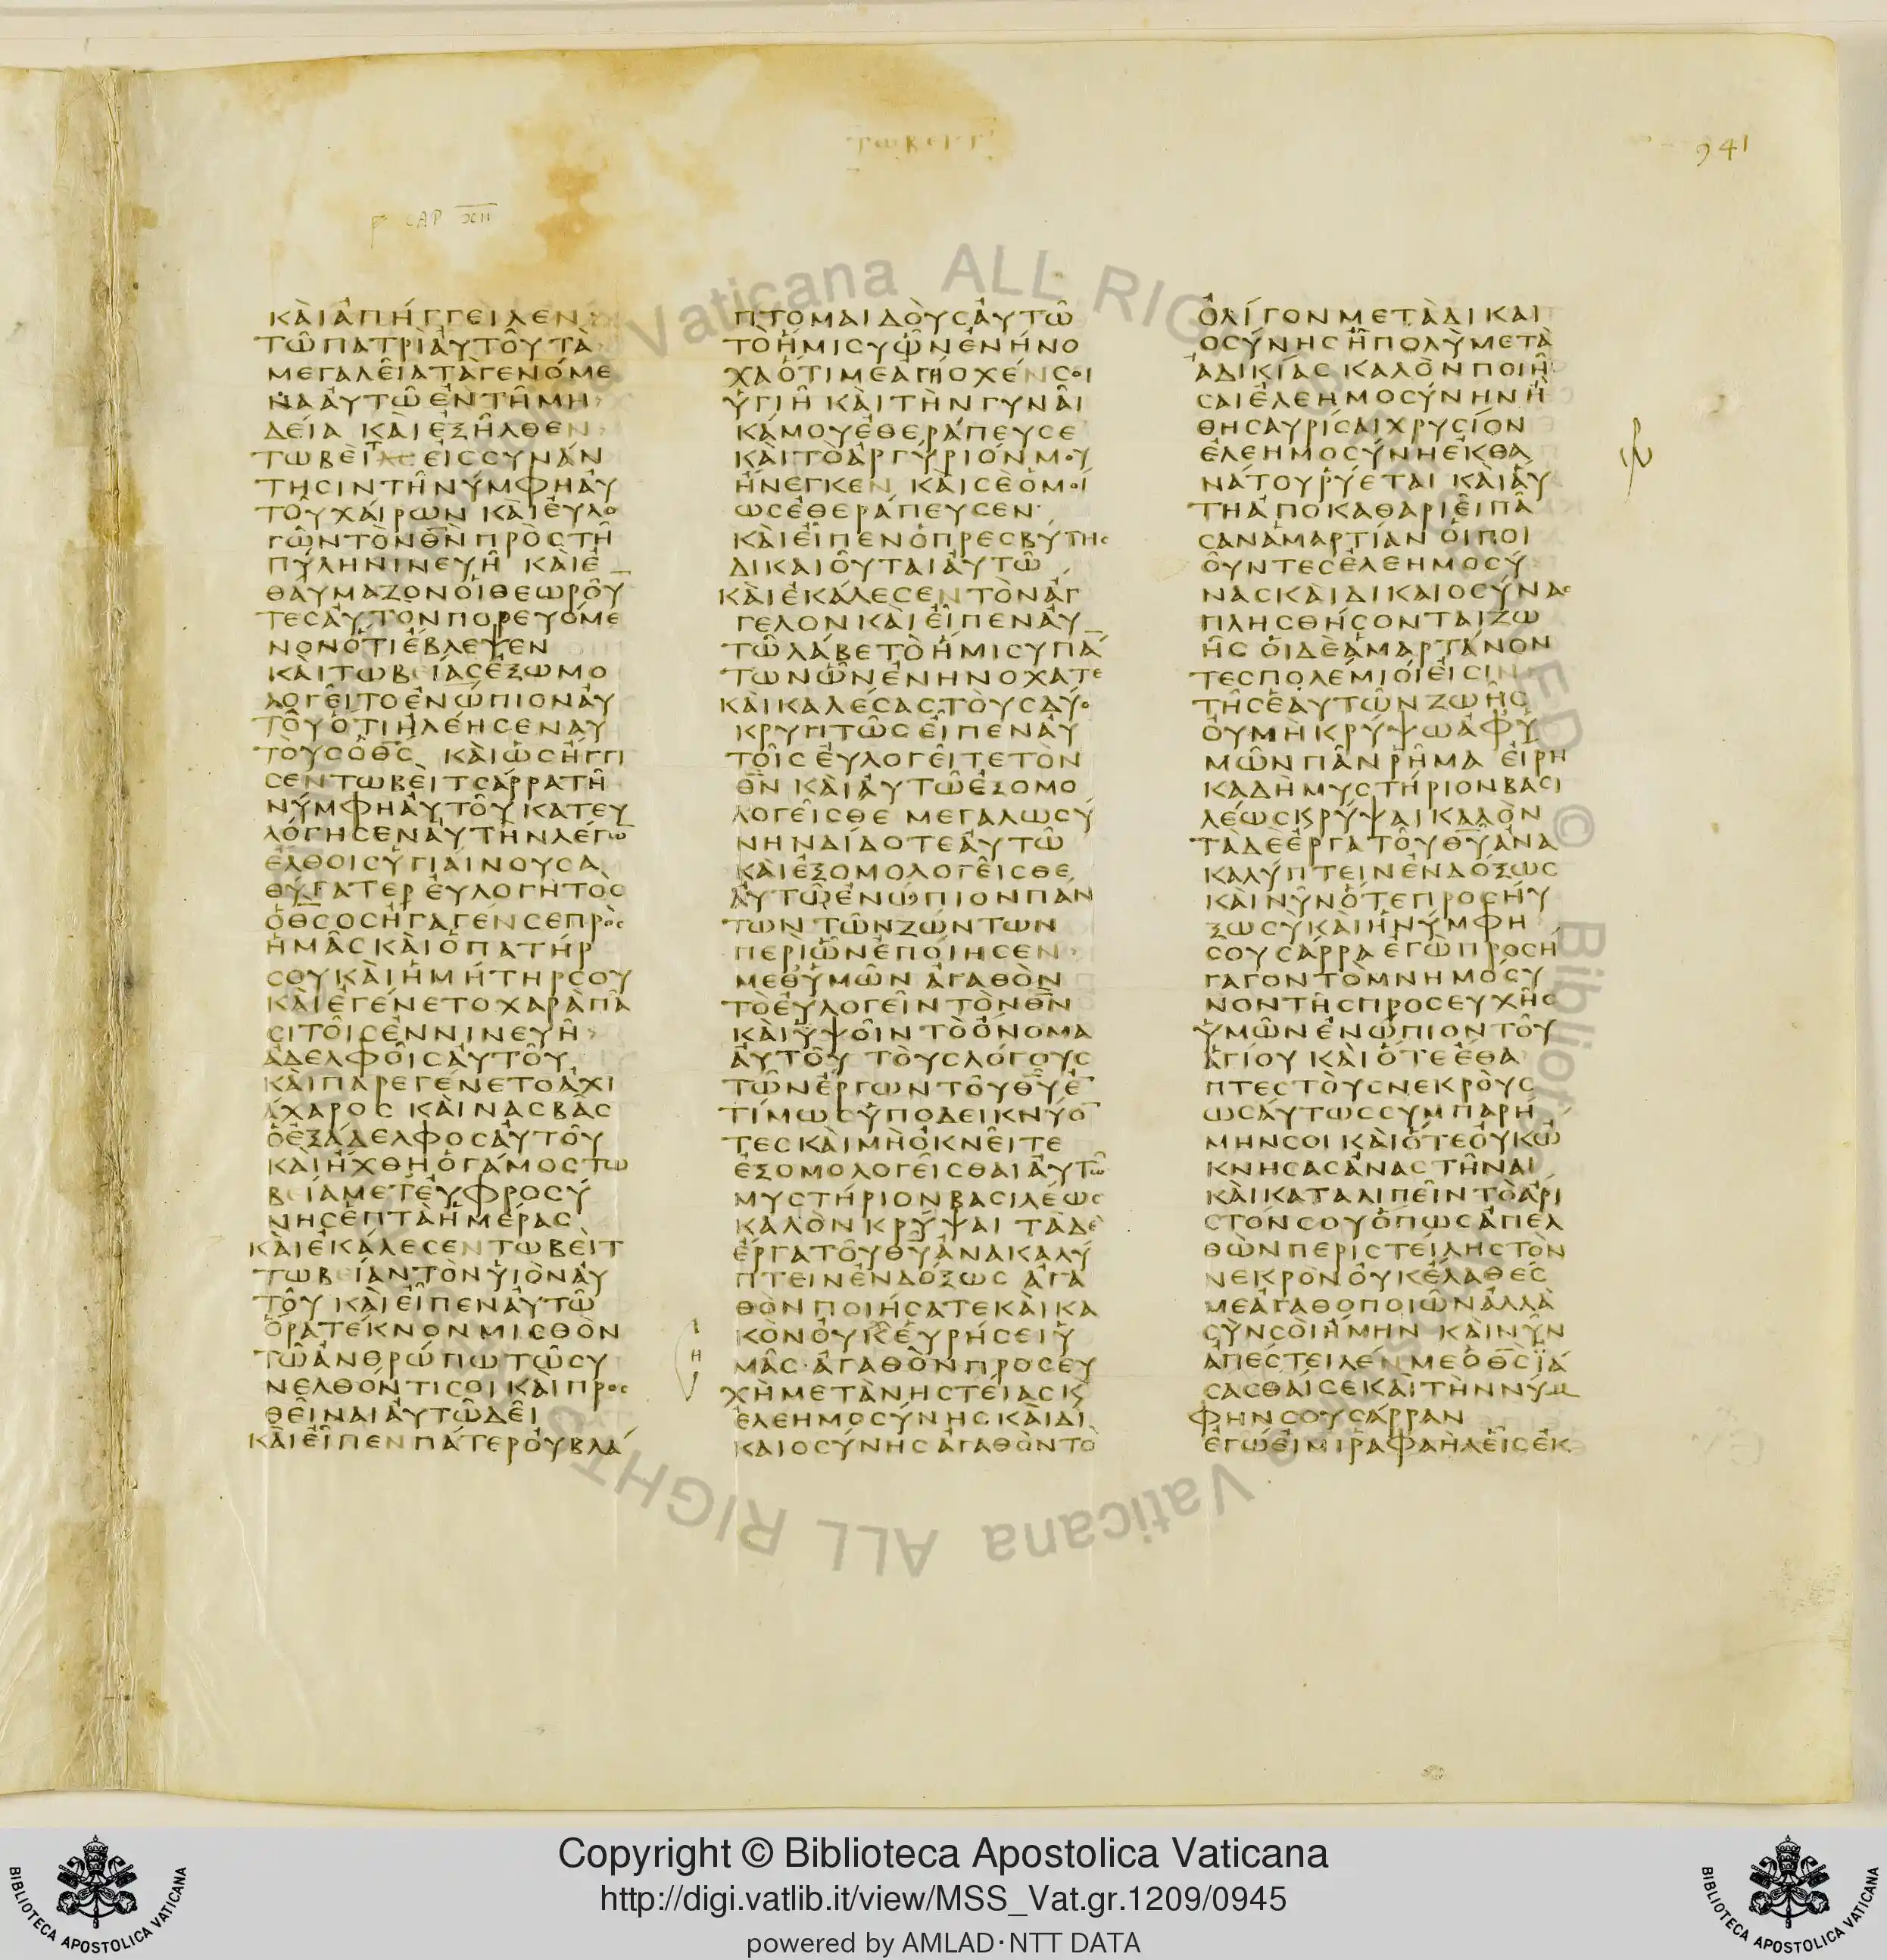 ΤΩΒΕΙΤ
941
CAP XII
ΚΑῚἈΠΉΓΓΕΙΛΕΝ
ΤΩ͂ΠΑΤΡῚἈΥΤΟΥ͂ΤᾺ
ΜΕΓΑΛΕΙ͂ΑΤᾺΓΕΝΌΜΕ
ΝΑἈΥΤΩ͂ἘΝΤΗ͂ΜΗ
ΔΕΊΑ ΚΑῚἘΞΗ͂ΛΘΕΝ
ΤΩΒΕῚΤ ΕΙϹϹΥΝΆΝ
ΤΗϹΙΝΤΗ͂ΝΎΜΦΗἈΥ
ΤΟΥ͂ΧΑΊΡΩΝ ΚΑῚΕΥΛΟ
ΓΩ͂ΝΤῸΝΘ̅Ν̅ΠΡῸϹΤΗ͂
ΠΎΛΗΝΙΝΕΥΗ͂ ΚΑῚἘ
ΘΑΎΜΑΖΟΝΟἹΘΕΩΡΟΥ͂
ΤΕϹἈΥΤῸΝΠΟΡΕΥΌΜΕ
ΝΟΝὍΤΙἜΒΛΕΨΕΝ
ΚΑῚΤΩΒΕΊΑϹἘΞΩΜΟ
ΛΟΓΕΙ͂ΤΟἘΝΏΠΙΟΝἈΥ
ΤΟΥ͂ὍΤΙἨΛΈΗϹΕΝἈΥ
ΤΟῪϹὉΘ̅Ϲ̅ ΚΑῚὩϹἬΓΓΙ
ϹΕΝΤΩΒΕῚΤϹΆΡΡΑΤΗ͂
ΝΎΜΦΗἈΥΤΟΥ͂ΚΑΤΕΥ
ΛΌΓΗϹΕΝἈΥΤῊΝΛΈΓΩ̅
ἜΛΘΟΙϹὙΓΙΑΊΝΟΥϹΑ
ΘΎΓΑΤΕΡ ἘΥΛΟΓΗΤῸϹ
ὉΘ̅Ϲ̅ΟϹἨΓΑΓΈΝϹΕΠΡῸϹ
ἩΜΑ͂ϹΚΑῚὉΠΑΤΉΡ
ϹΟΥΚΑῚἩΜΉΤΗΡϹΟΥ
ΚΑῚἘΓΈΝΕΤΟΧΑΡᾺΠΑ͂
ϹΙΤΟΙ͂ϹἘΝΝΙΝΕΥΗ͂
ἈΔΕΛΦΟΙ͂ϹἈΥΤΟΥ͂
ΚΑῚΠΑΡΕΓΈΝΕΤΟἈΧΙ
ΆΧΑΡΟϹ ΚΑῚΝΑϹΒΑ͂Ϲ
ὉἘΞΆΔΕΛΦΟϹἈΥΤΟΥ͂
ΚΑῚἬΧΘΗὉΓΆΜΟϹΤΩ
ΒΕΊΑΜΕΤἘΥΦΡΟϹΎ
ΝΗϹἙΠΤᾺἩΜΈΡΑϹ
ΚΑῚἘΚΆΛΕϹΕΝΤΩΒΕῚΤ
ΤΩΒΕΊΑΝΤῸΝὙΙῸΝἈΥ
ΤΟΥ͂ ΚΑῚΕἾΠΕΝἈΥΤΩ͂
ὍΡΑΤΈΚΝΟΝΜΙϹΘῸΝ
ΤΩ͂ἈΝΘΡΏΠΩΤΩ͂ϹΥ
ΝΕΛΘΌΝΤΙϹΟΙ ΚΑῚΠΡΟϹ
ΘΕΙ͂ΝΑΙἈΥΤΩ͂ΔΕΙ͂
ΚΑῚΕἾΠΕΝΠΆΤΕΡΟΎΒΛΆ
ΠΤΟΜΑΙΔΟῪϹἈΥΤΩ͂
ΤῸἭΜΙϹΥὯΝἘΝΉΝΟ
ΧΑὍΤΙΜΕἈΓΗΟΧΈΝϹΟΙ
ὙΓΙΗ͂ ΚΑῚΤῊΝΓΥΝΑΙ͂
ΚΆΜΟΥἘΘΕΡΆΠΕΥϹΕ
ΚΑῚΤῸἈΡΓΎΡΙΌΝΜΟΥ
ἬΝΕΓΚΕΝ ΚΑῚϹῈὉΜΟΊ
ΩϹἘΘΕΡΆΠΕΥϹΕΝ
ΚΑῚΕἾΠΕΝὉΠΡΕϹΒΎΤΗϹ
ΔΙΚΑΙΟΥ͂ΤΑΙἈΥΤΩ͂
ΚΑῚἘΚΆΛΕϹΕΝΤῸΝἌΓ
ΓΕΛΟΝΚΑῚΕἾΠΕΝἈΥ
ΤΩ͂ΛΆΒΕΤῸἭΜΙϹΥΠΆ
ΤΩΝὯΝἘΝΗΝΌΧΑΤΕ
ΚΑῚΚΑΛΈϹΑϹΤΟῪϹΔΎΟ
ΚΡΥΠΤΩ͂ϹΕἾΠΕΝἈΥ
ΤΟΙ͂ϹἘΥΛΟΓΕΙ͂ΤΕΤῸΝ
Θ̅Ν̅ ΚΑῚἈΥΤΩ͂ἘΞΟΜΟ
ΛΟΓΕΙ͂ϹΘΕ ΜΕΓΑΛΩϹΎ
ΝΗΝΔΊΔΟΤΕἈΥΤΩ͂
ΚΑῚἘΞΟΜΟΛΟΓΕΙ͂ϹΘΕ
ἈΥΤΩ͂ἘΝΏΠΙΟΝΠΑΝ
ΤΩΝΤΩ͂ΝΖΏΝΤΩΝ
ΠΕΡῚὯΝἘΠΟΊΗϹΕΝ
ΜΕΘΥΜΩ͂Ν ἈΓΑΘῸΝ
ΤῸἘΥΛΟΓΕΙ͂ΝΤῸΝΘ̅Ν̅
ΚΑῚὙΨΟΙ͂ΝΤῸὌΝΟΜΑ
ἈΥΤΟΥ͂ ΤΟῪϹΛΌΓΟΥϹ
ΤΩ͂ΝἜΡΓΩΝΤΟΥ͂Θ̅Υ̅Ἐ̅
ΤΊΜΩϹὙΠΟΔΕΙΚΝΎΟ̅
ΤΕϹΚΑῚΜῊὈΚΝΕΙ͂ΤΕ
ἘΞΟΜΟΛΟΓΕΙ͂ϹΘΑΙἈΥΤΩ͂
ΜΥϹΤΉΡΙΟΝΒΑϹΙΛΈΩϹ
ΚΑΛῸΝΚΡΎΨΑΙ ΤᾺΔῈ
ἜΡΓΑΤΟΥ͂Θ̅Υ̅ἈΝΑΚΑΛΎ
ΠΤΕΙΝἘΝΔΌΞΩϹ ἈΓΑ
ΘῸΝΠΟΙΉϹΑΤΕΚΑῚΚΑ
ΚῸΝΟΎΚΕΥΡΉϹΕΙὙ
Η
ΜΑ͂Ϲ·ἈΓΑΘῸΝΠΡΟϹΕΥ
ΧῊΜΕΤᾺΝΗϹΤΕΊΑϹϏ
ΕΛΕΗΜΟϹΎΝΗϹΚΑῚΔΙ
ΚΑΙΟϹΎΝΗϹἈΓΑΘῸΝΤῸ
ὈΛΊΓΟΝΜΕΤᾺΔΙΚΑΙ
ΟϹΎΝΗϹἪΠΟΛῪΜΕΤᾺ
ἈΔΙΚΊΑϹ ΚΑΛῸΝΠΟΙΗ͂
ϹΑΙἘΛΕΗΜΟϹΎΝΗΝἪ
ΘΗϹΑΥΡΊϹΑΙΧΡΥϹΊΟΝ
ἘΛΕΗΜΟϹΎΝΗἘΚΘΑ
ΝΆΤΟΥΡΎΕΤΑΙ ΚΑῚἈΥ
ΤΗἈΠΟΚΑΘΑΡΙΕΙ͂ΠΑ͂
ϹΑΝἉΜΑΡΤΊΑΝ ΟἹΠΟΙ
ΟΥ͂ΝΤΕϹἘΛΕΗΜΟϹΎ
ΝΑϹΚΑῚΔΙΚΑΙΟϹΎΝΑϹ
ΠΛΗϹΘΉϹΟΝΤΑΙΖΩ
ΗϹ͂ ΟἹΔῈἉΜΑΡΤΆΝΟΝ
ΤΕϹΠΟΛΈΜΙΟΙΕἸϹΙΝ
ΤΗ͂ϹἙΑΥΤΩ͂ΝΖΩΗ͂Ϲ
ΟΎΜῊΚΡΎΨΩἈΦΎ
ΜΩ͂ΝΠΑ͂ΝΡΗ͂ΜΑ ΕἸΡΗ
ΚΑΔῊΜΥϹΤΉΡΙΟΝΒΑϹΙ
ΛΈΩϹΚΡΎΨΑΙΚΑΛῸΝ
ΤᾺΔῈἜΡΓΑΤΟΥ͂Θ̅Υ̅ἈΝΑ
ΚΑΛΎΠΤΕΙΝἘΝΔΌΞΩϹ
ΚΑῚΝΥ͂ΝὍΤΕΠΡΟϹΗΎ
ΞΩϹῪΚΑῚἩΝΎΜΦΗ
ϹΟΥϹΆΡΡΑ ἘΓῺΠΡΟϹΉ
ΓΑΓΟΝΤῸΜΝΗΜΌϹΥ
ΝΟΝΤΗ͂ϹΠΡΟϹΕΥΧΗ͂Ϲ
ὙΜΩ͂ΝἘΝΏΠΙΟΝΤΟΥ͂
ἉΓΊΟΥ ΚΑῚὍΤΕἜΘΑ
ΠΤΕϹΤΟῪϹΝΕΚΡΟῪϹ
ΩϹΆΥΤΩϹϹΥΜΠΑΡΉ
ΜΗΝϹΟΙ ΚΑῚὍΤΕΟΎΚΩ
ΚΝΗϹΑϹἈΝΑϹΤΗ͂ΝΑΙ
ΚΑῚΚΑΤΑΛΙΠΕΙ͂ΝΤῸἌΡΙ
ϹΤΌΝϹΟΥὍΠΩϹἈΠΕΛ
ΘῺΝΠΕΡΙϹΤΕΊΛΗϹΤῸΝ
ΝΕΚΡῸΝΟΎΚἜΛΑΘΕϹ
ΜΕἈΓΑΘΟΠΟΙΩ͂ΝἈΛΛᾺ
ϹῪΝϹΟῚἬΜΗΝ ΚΑῚΝΥ͂Ν
ἈΠΈϹΤΕΙΛΈΝΜΕὉΘ̅Ϲ̅ΪΆ
ϹΑϹΘΑΊϹΕΚΑῚΤῊΝΝΎΜ
ΦΗΝϹΟΥϹΆΡΡΑΝ
ἘΓΏΕἸΜΙΡΑΦΑῊΛΕἿϹἘΚ
Copyright © Biblioteca Apostolica Vaticana
http://digi.vatlib.it/view/MSS_Vat.gr.1209/0945
powered by AMLAD·NTT DATA
BIBLIOTECA APOSTOLICA VATICANA
BIBLIOTECA APOSTOLICA VATICANA